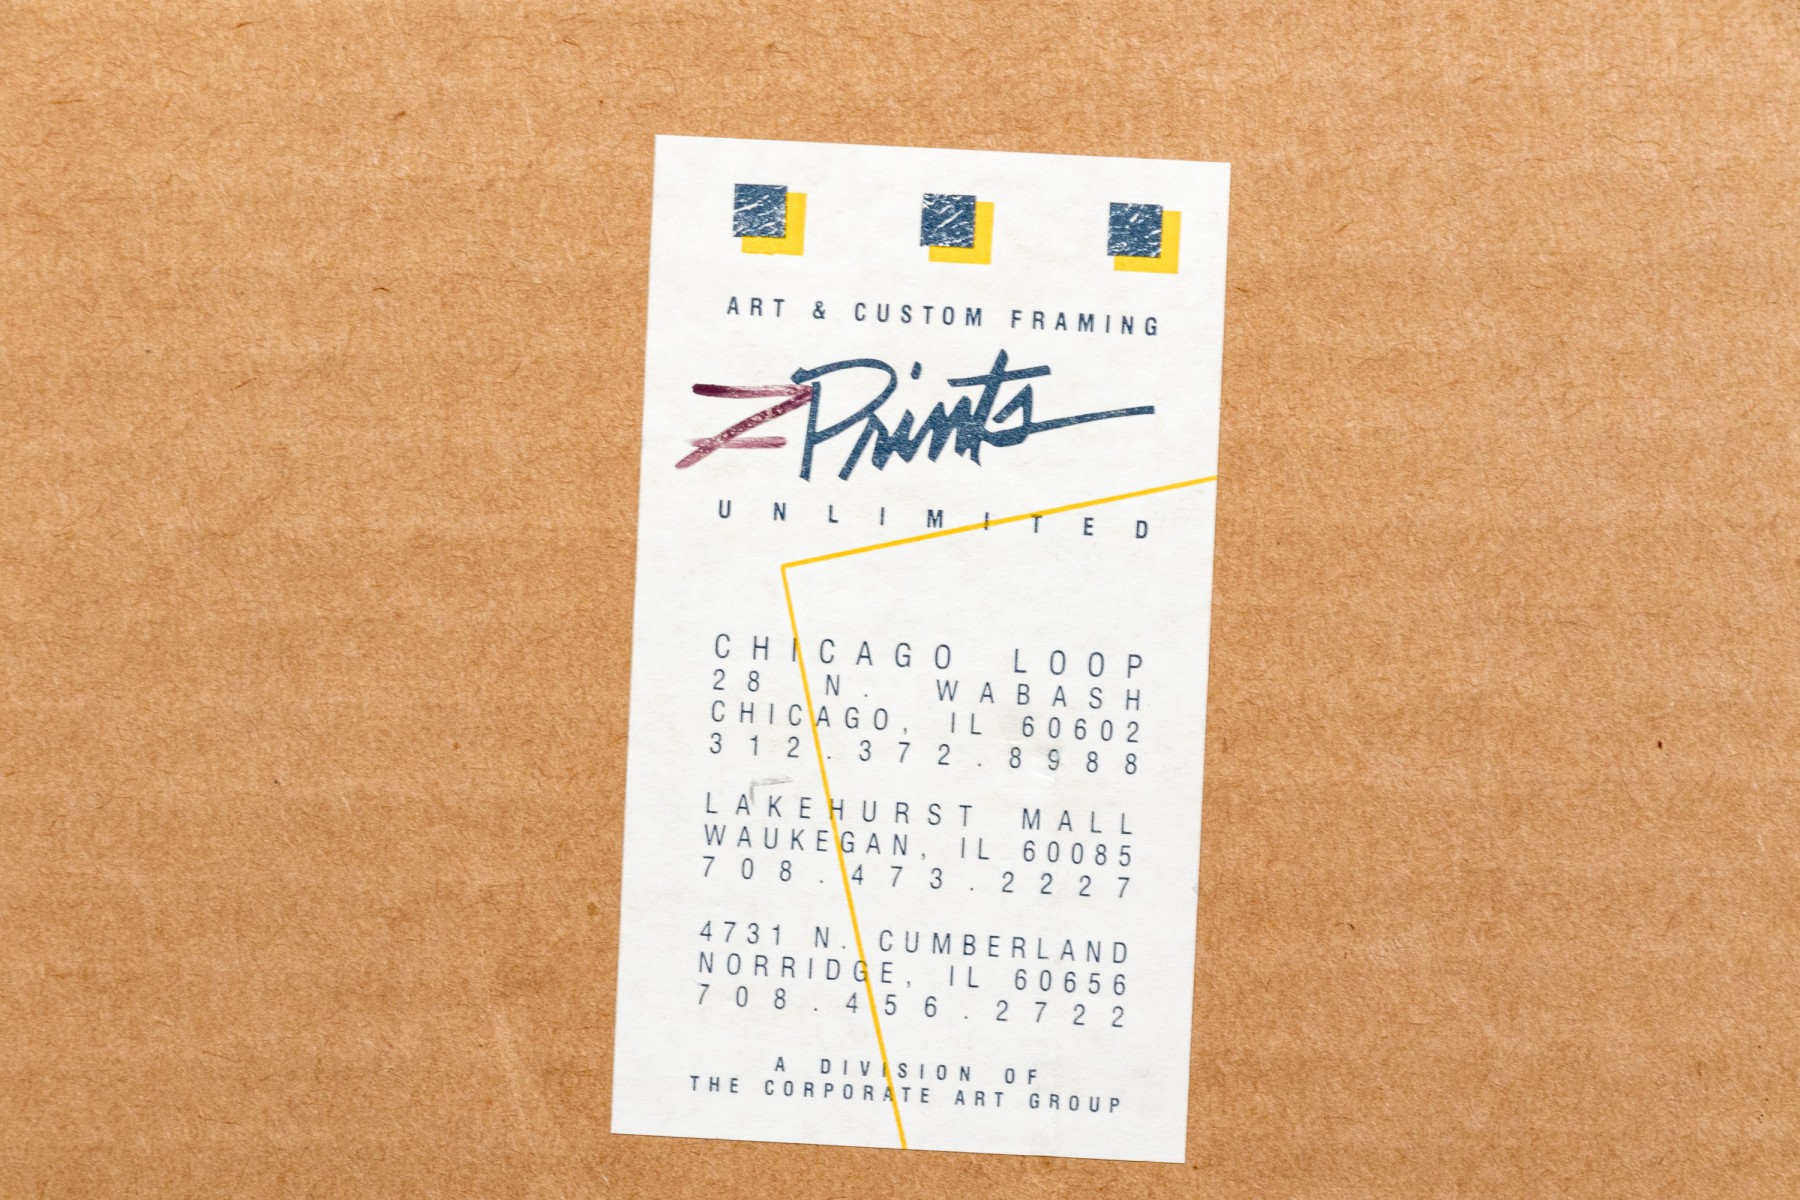 ART & CUSTOM FRAMING
Prints
UNLIMITED
CHICAGO LOOP
28 N. WABASH
CHICAGO, IL 60602
312.372.8988
LAKEHURST MALL
WAUKEGAN, IL 60085
708.473.2227
4731 N. CUMBERLAND
NORRIDGE, IL 60656
708.456.2722
A DIVISION OF
THE CORPORATE ART GROUP